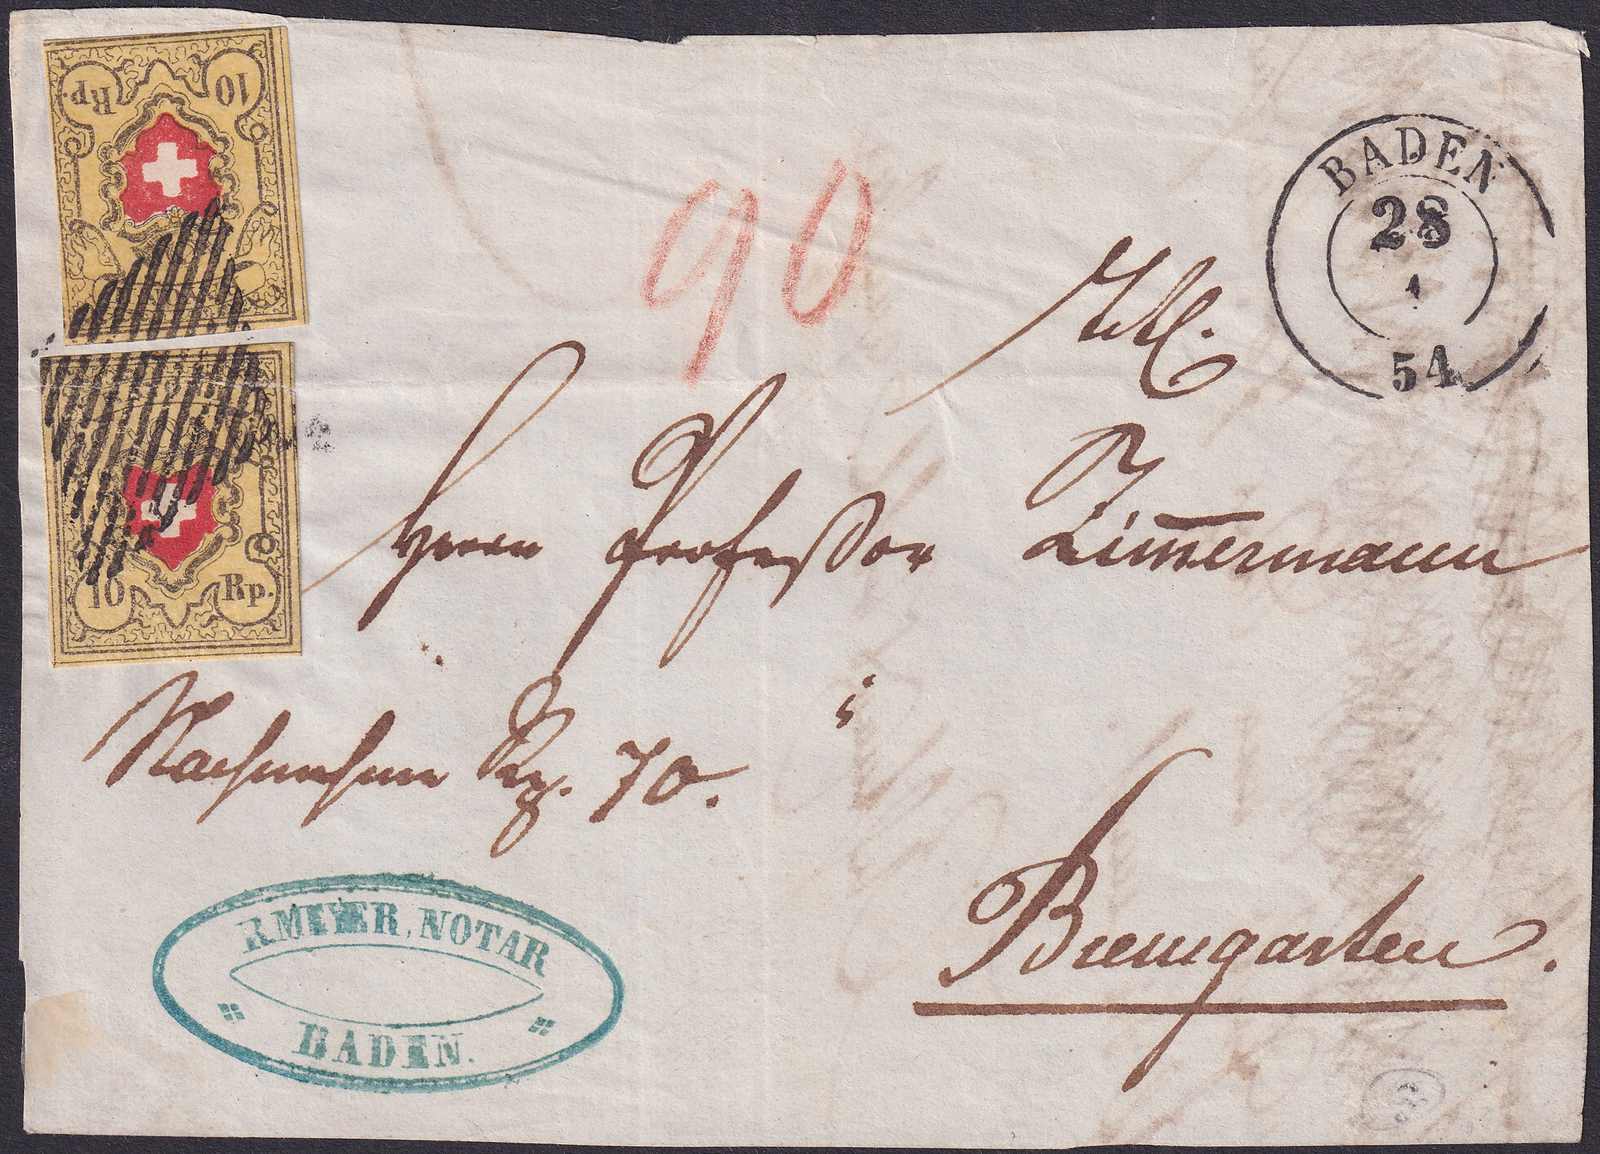 10 Rp.
10 Rp.
90
BADEN
28
1
54
Herrn Professor Zimmermann
Nachnahme Rp. 70.
Bremgarten.
R MEYER, NOTAR
BADEN.